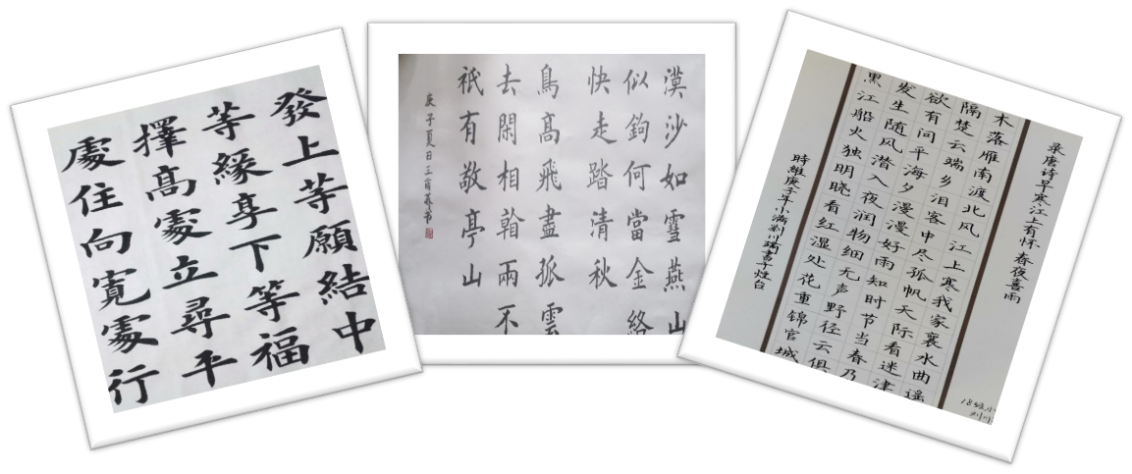 發上等願結中
等緣享下等福
擇高處立尋平
處住向寬處行
漠沙如雪燕山
似鉤何當金絡
快走踏清秋
鳥高飛盡孤雲
去閑相看兩不
祇有敬亭山
庚子夏日王书
录唐诗早寒江上有怀春夜喜雨
木落雁南渡北风江上寒我家襄水曲遥
隔楚云端乡泪客中尽孤帆天际看迷津
欲有问平海夕漫漫好雨知时节当春乃
发生随风潜入夜润物细无声野径云俱
黑江船火独明晓看红湿处花重锦官城
時維庚子年小满书于灶台